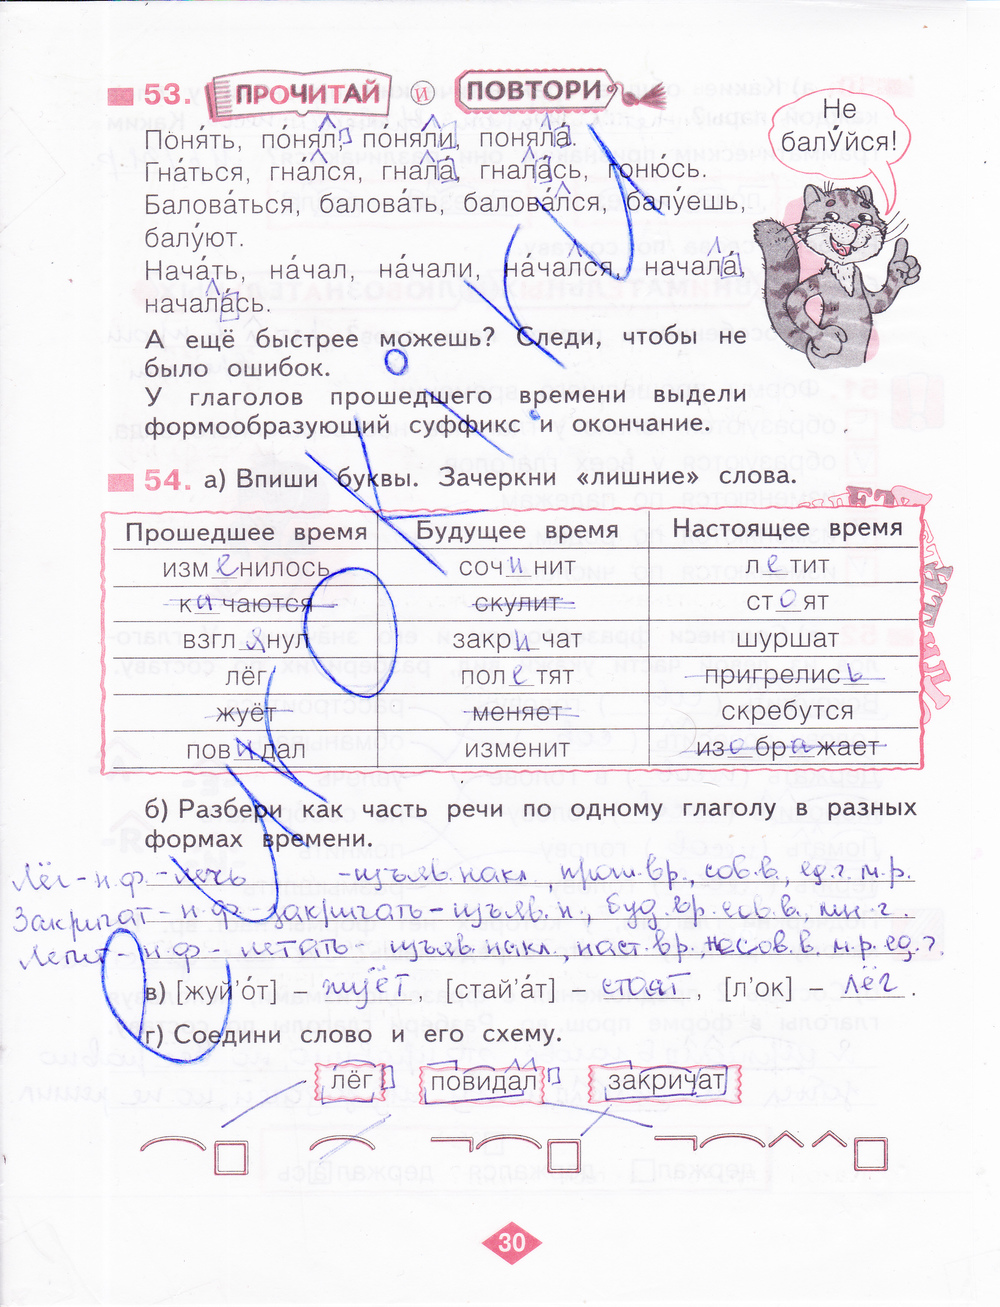 53. ПРОЧИТАЙ И ПОВТОРИ
Не
балУ́йся!
Поня́ть, по́нял, по́няли, поняла́.
Гна́ться, гна́лся, гнала́, гнала́сь, гоню́сь.
Балова́ться, балова́ть, балова́лся, балу́ешь,
балу́ют.
Нача́ть, на́чал, на́чали, на́чался, начала́,
начала́сь.
А ещё быстрее можешь? Следи, чтобы не
было ошибок.
У глаголов прошедшего времени выдели
формообразующий суффикс и окончание.
54. а) Впиши буквы. Зачеркни «лишние» слова.
Прошедшее время Будущее время Настоящее время
изменилось сочинит летит
качаются скулит стоят
взглянул закричат шуршат
лёг полетят пригрелись
жуёт меняет скребутся
повидал изменит изображает
б) Разбери как часть речи по одному глаголу в разных
формах времени.
Лёг - н.ф. - лечь - изъяв. накл., прош. вр., сов. в., ед.ч. м.р.
Закричат - н.ф. - закричать - изъяв. н., буд. вр. сов. в., мн.ч.
Летит - н.ф. - летать - изъяв. накл., наст. вр. несов. в. м.р. ед.ч.
в) [жуй'о́т] – жуёт [стай'а́т] – стоят, [л'ок] – лёг.
г) Соедини слово и его схему.
лёг повидал закричат
30